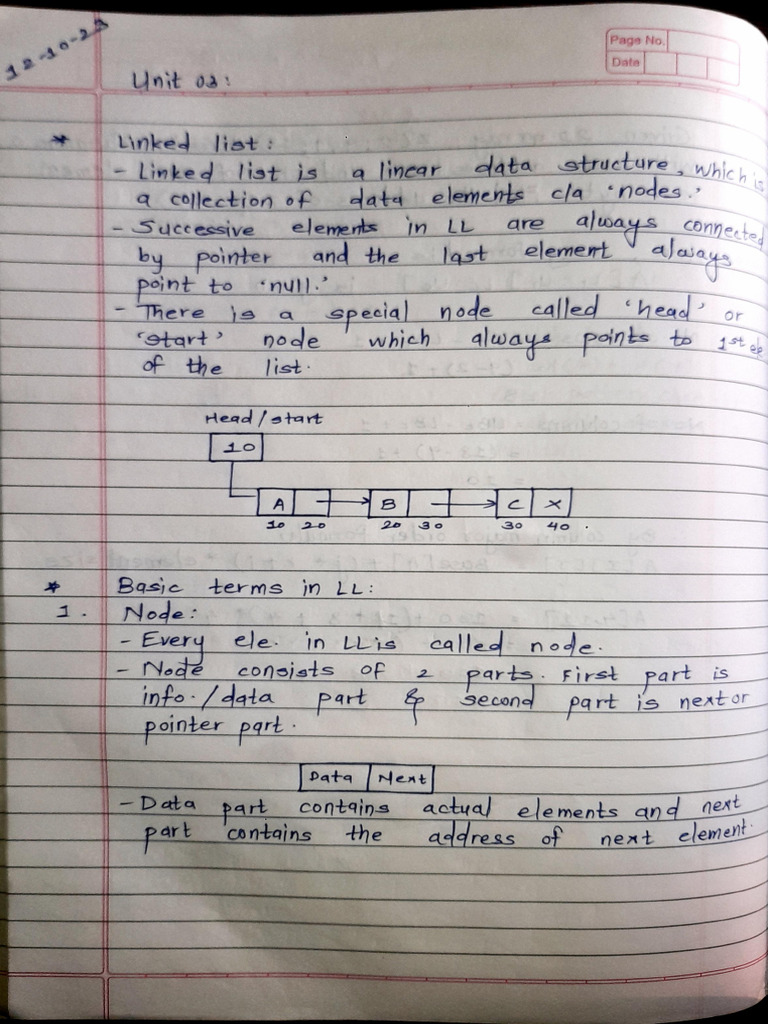 12-10-23
Page No.
Date
Unit 03:
* Linked list:
- Linked list is a linear data structure, which is
a collection of data elements c/a 'nodes.'
- Successive elements in LL are always connected
by pointer and the last element always
point to 'null.'
- There is a special node called 'head' or
'start' node which always points to 1st ele
of the list.
Head/start
10
A B C X
10 20 20 30 30 40 .
* Basic terms in LL:
1. Node:
- Every ele. in LL is called node.
- Node consists of 2 parts. First part is
info./data part & second part is next or
pointer part.
Data Next
- Data part contains actual elements and next
part contains the address of next element.